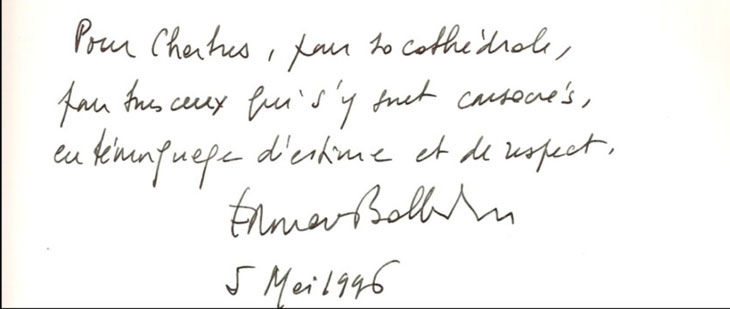 Pour Chartres, pour sa cathédrale,
pour tous ceux qui s'y sont consacrés,
en témoignage d'estime et de respect.
5 Mai 1996